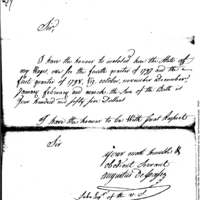 Sir,
I have the honour to inclosed here the State of
my Wages, one for the fourth quarter of 1797 and the
first quarter of 1798, Viz. october, november, December,
January february and march. the Sum of the Both is
four Hundred and fifty five Dollars
I have the honour to be With Great Respect
Sir
your most humble &
obedient Servant